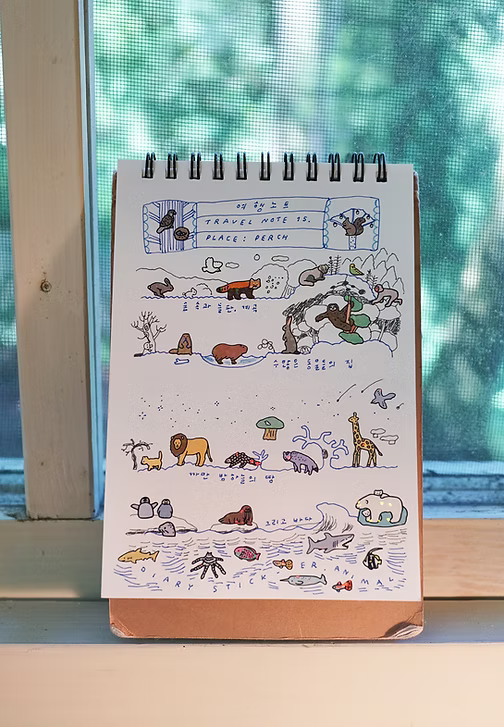 여행노트
TRAVEL NOTE 15.
PLACE : PERCH
동물들의 집
까만 밤하늘의 땅
그리고 바다
DIARY STICKER ANIMAL